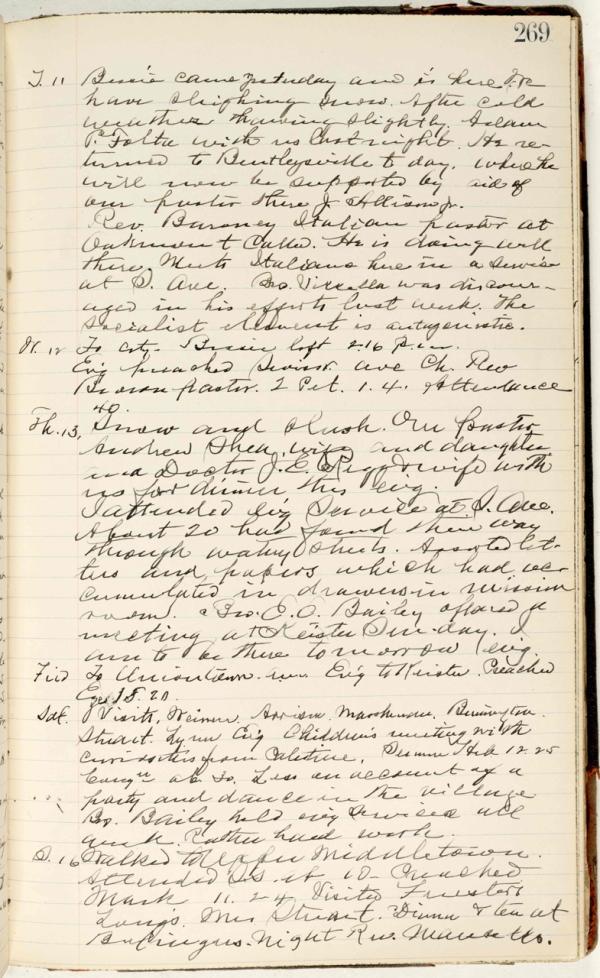 269
T. 11 Bessie came yesterday and is here. We
have sleighing snow. After cold
weather thawing slightly. Adam
P. Folta with us last night. He re-
turned to Bentleysville to day, where he
will now be supported by aid of
our pastor there J. Allison Jr.
Rev. Baroney Italian pastor at
Oakmont called. He is doing well
there. Meets Italians here in a service
at S. Ave. Bro. was discour-
aged in his efforts last week. The
socialist element is antagonistic.
W. 12 To city. Bessie left 2.16 p.m.
Ev'g preached Division ave Ch. Rev
Brown pastor. 2 Pet. 1.4. Attendance
40.
Th. 13, Snow and slush. Our pastor
Andrew Shea, wife and daughter
and Doctor J. E. wife with
us for dinner this ev'g.
I attended ev'g service at S. Ave.
About 20 had found their way
through watery streets. Assorted let-
ters and papers which had ac-
cumulated in drawers in mission
room. Bro. E. O. Bailey offered a
meeting at Keister Sun-day. I
am to be there tomorrow ev'g.
To Uniontown Ev'g to Keister. Preached
20
Sat. Visits,
Stuart. Lynn Ev'g Children's meeting with
curiosities from Palestine. Sermon Heb 12.25
Cong'n ab. 20. Less on account of a
party and dance in the village
Br. Bailey held ev'g services all
week. Rather hard work.
S. 16 Walked to Upper Middletown.
Attended S.S. at 10 Preached
Mark 11. 24 Visited
Long's. Mrs Stuart. Dinner & tea at
Night Rev.